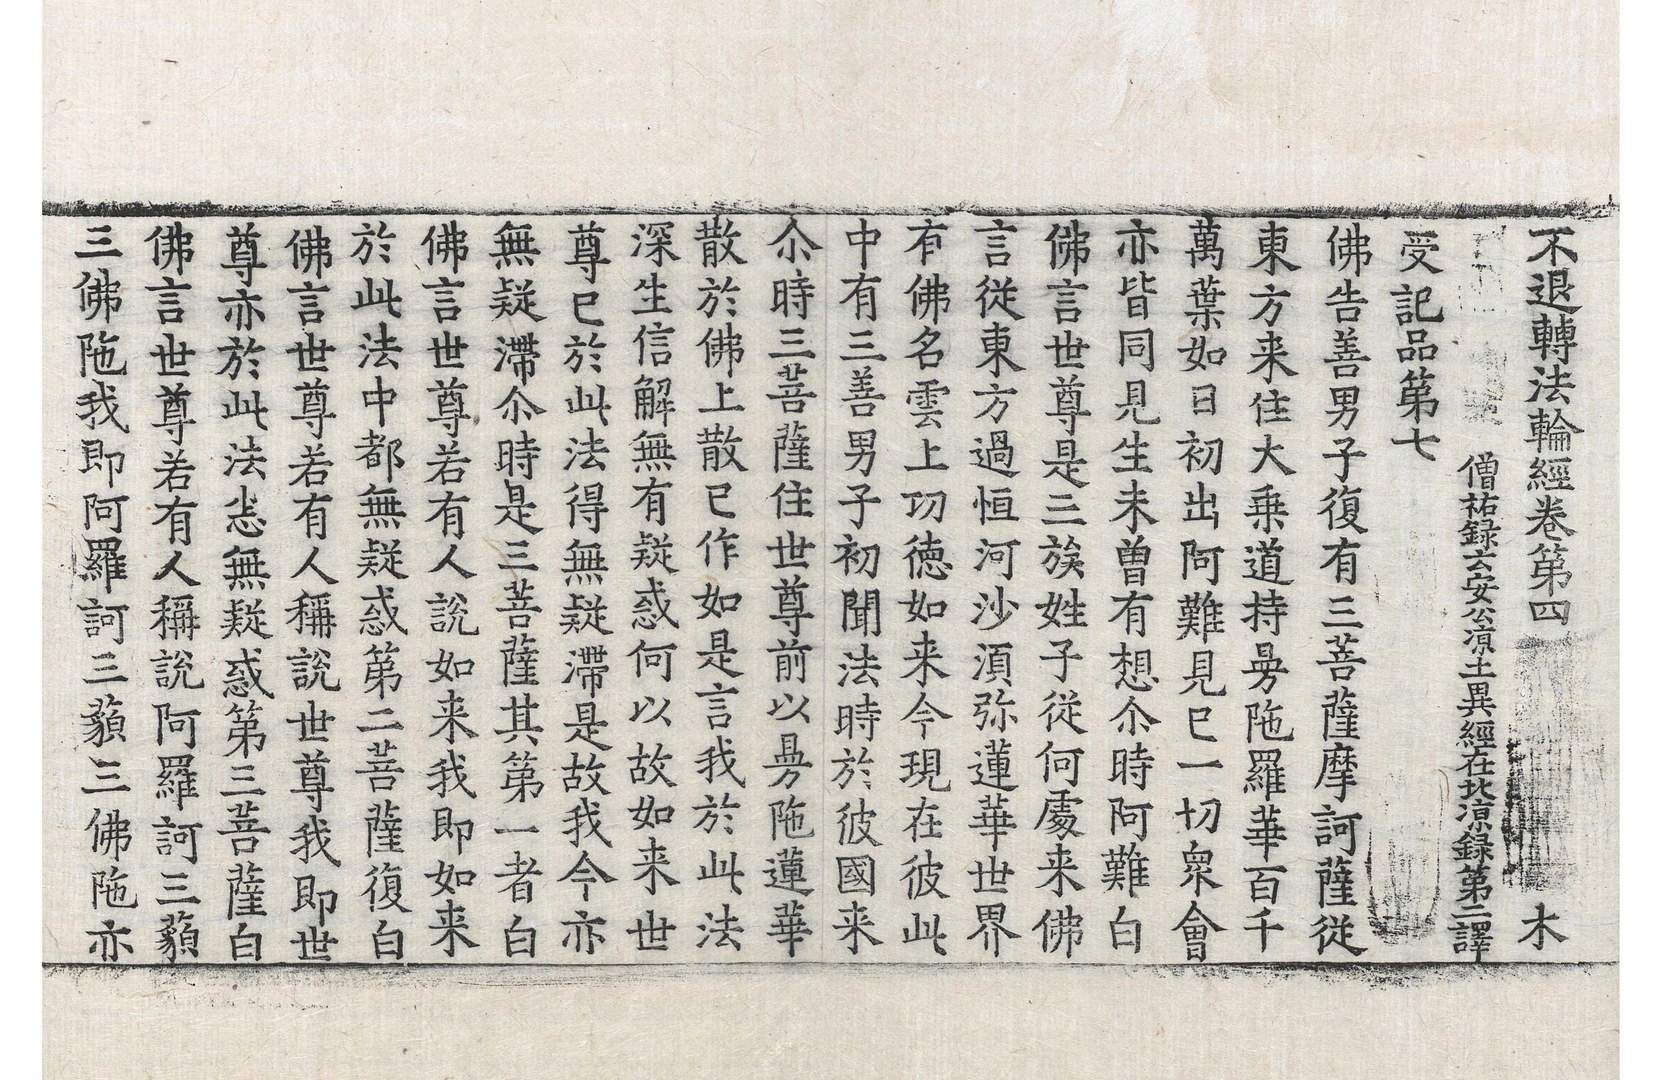 不退轉法輪經卷第四 木
僧祐録云安公凉土異經在北凉録第二譯
受記品第七
佛告善男子復有三菩薩摩訶薩從
東方来住大乗道持㝵陁羅華百千
萬葉如日初出阿難見已一切衆會
亦皆同見生未曽有想尒時阿難白
佛言世尊是三族姓子從何處来佛
言從東方過恒河沙湏弥蓮華世界
有佛名雲上功德如来今現在彼此
中有三善男子初聞法時於彼國来
尒時三菩薩住世尊前以㝵陁蓮華
散於佛上散已作如是言我於此法
深生信解無有疑惑何以故如来世
尊已於此法得無疑滯是故我今亦
無疑滯尒時是三菩薩其第一者白
佛言世尊若有人說如来我即如来
於此法中都無疑惑第二菩薩復白
佛言世尊若有人稱說世尊我即世
尊亦於此法悉無疑惑第三菩薩白
佛言世尊若有人稱說阿羅訶三藐
三佛陁我即阿羅訶三藐三佛陁亦